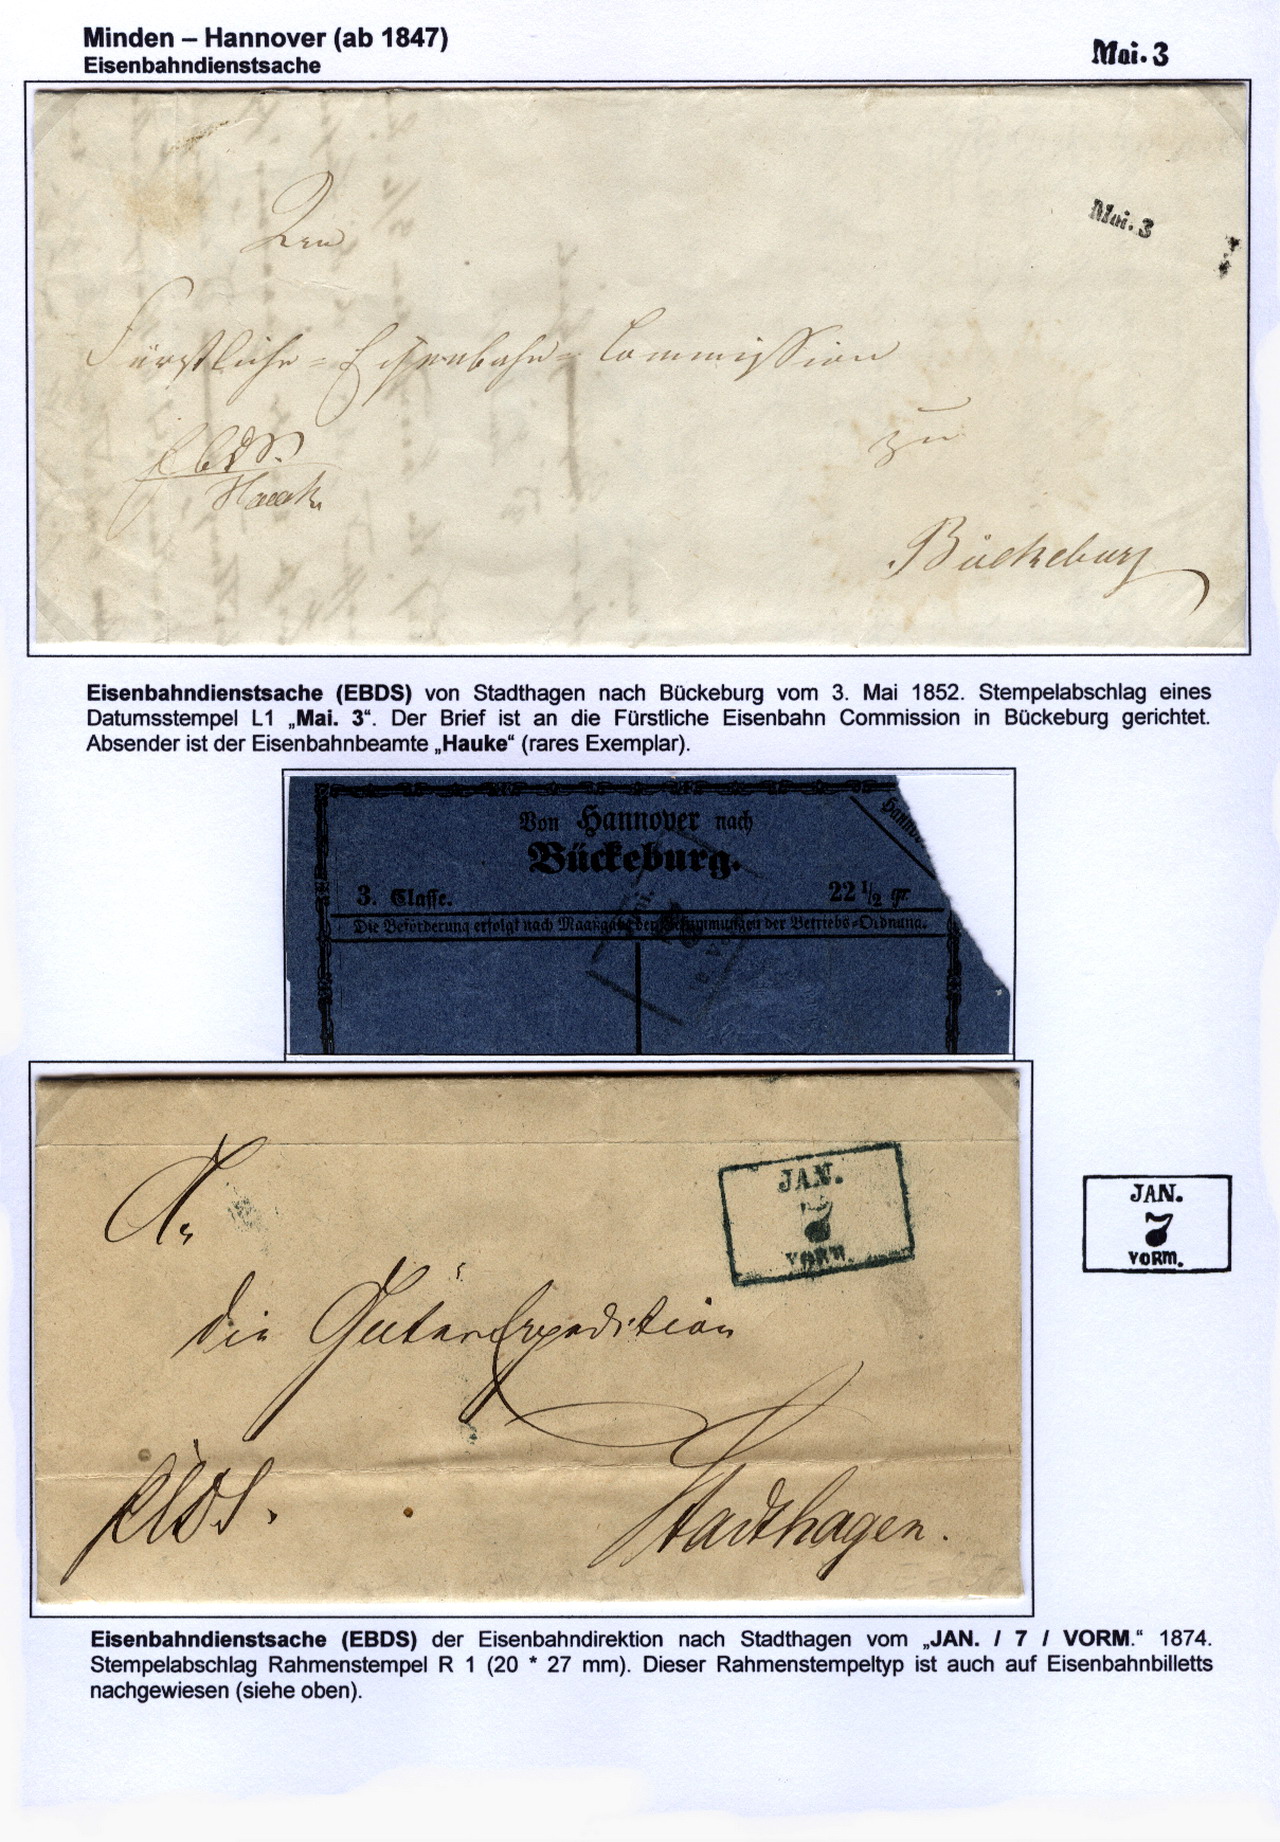 Minden – Hannover (ab 1847)
Eisenbahndienstsache
Mai. 3
Mai. 3
Den
Fürstliche = Eisenbahn = Commission
zu
Ebds.
Hauke
Bückeburg
Eisenbahndienstsache (EBDS) von Stadthagen nach Bückeburg vom 3. Mai 1852. Stempelabschlag eines
Datumsstempel L1 „Mai. 3“. Der Brief ist an die Fürstliche Eisenbahn Commission in Bückeburg gerichtet.
Absender ist der Eisenbahnbeamte „Hauke“ (rares Exemplar).
Von Hannover nach
Bückeburg.
3. Classe.
22 1/2 gr.
Die Beförderung erfolgt nach Maaßgabe der Bestimmungen der Betriebs=Ordnung.
JAN.
7
VORM.
An
die Güterexpedition
EBDS.
Stadthagen.
JAN.
7
VORM.
Eisenbahndienstsache (EBDS) der Eisenbahndirektion nach Stadthagen vom „JAN. / 7 / VORM.“ 1874.
Stempelabschlag Rahmenstempel R 1 (20 * 27 mm). Dieser Rahmenstempeltyp ist auch auf Eisenbahnbilletts
nachgewiesen (siehe oben).